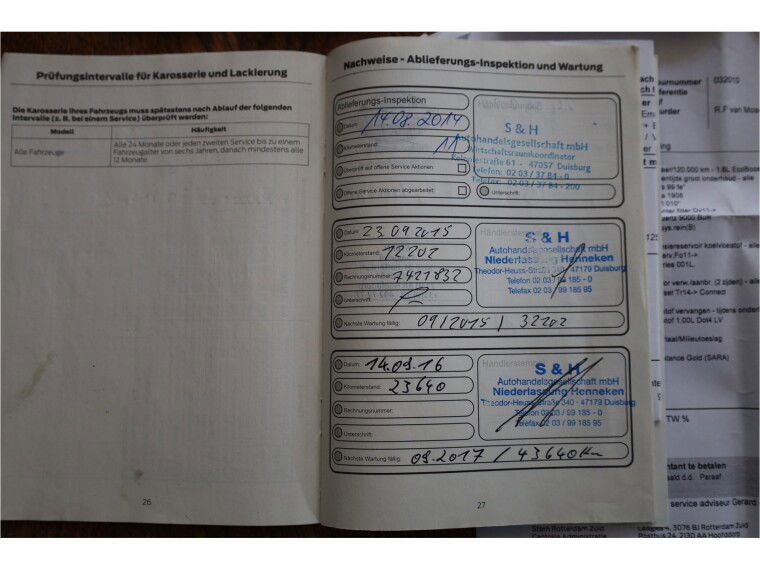 Prüfungsintervalle für Karosserie und Lackierung
Die Karosserie Ihres Fahrzeugs muss spätestens nach Ablauf der folgenden
Intervalle (z. B. bei einem Service) überprüft werden:
Modell Häufigkeit
Alle Fahrzeuge
Alle 24 Monate oder jeden zweiten Service bis zu einem
Fahrzeugalter von sechs Jahren, danach mindestens alle
12 Monate.
26
Nachweise - Ablieferungs-Inspektion und Wartung
Ablieferungs-Inspektion
Datum: 14.08.2014
Kilometerstand: 11
Überprüft auf offene Service Aktionen:
Offene Service Aktionen abgearbeitet:
S & H
Autohandelsgesellschaft mbH
Wirtschaftsraumkoordinator
47057 Duisburg
Telefon: 02 03 / 37 84 - 0
Telefax: 02 03 / 37 84 - 200
Unterschrift:
Datum: 23.09.2015
Kilometerstand: 12202
Rechnungsnummer: 7421832
Unterschrift:
Nächste Wartung fällig: 09/2015 / 32202
Händlerstempel
S & H
Autohandelsgesellschaft mbH
Niederlassung Henneken
Theodor-Heuss-Straße 340 - 47179 Duisburg
Telefon 02 03 / 99 185 - 0
Telefax 02 03 / 99 185 95
Datum: 14.09.16
Kilometerstand: 23640
Rechnungsnummer:
Unterschrift:
Nächste Wartung fällig: 09.2017 / 43640 Km
Händlerstempel
S & H
Autohandelsgesellschaft mbH
Niederlassung Henneken
Theodor-Heuss-Straße 340 - 47179 Duisburg
Telefon 02 03 / 99 185 - 0
Telefax 02 03 / 99 185 95
27
032010
R.F van
1908
010"
Tr14-> Connect
stof 1.00L Dot4 LV
aal/Milieutoeslag
stance Gold (SARA)
TW %
te betalen
d.d. Paraaf
service adviseur Gerard
3076 BJ Rotterdam Zuid
Stern Rotterdam Zuid
Postbus 24, 2130 AA Hoofddorp
Centrale Administratie